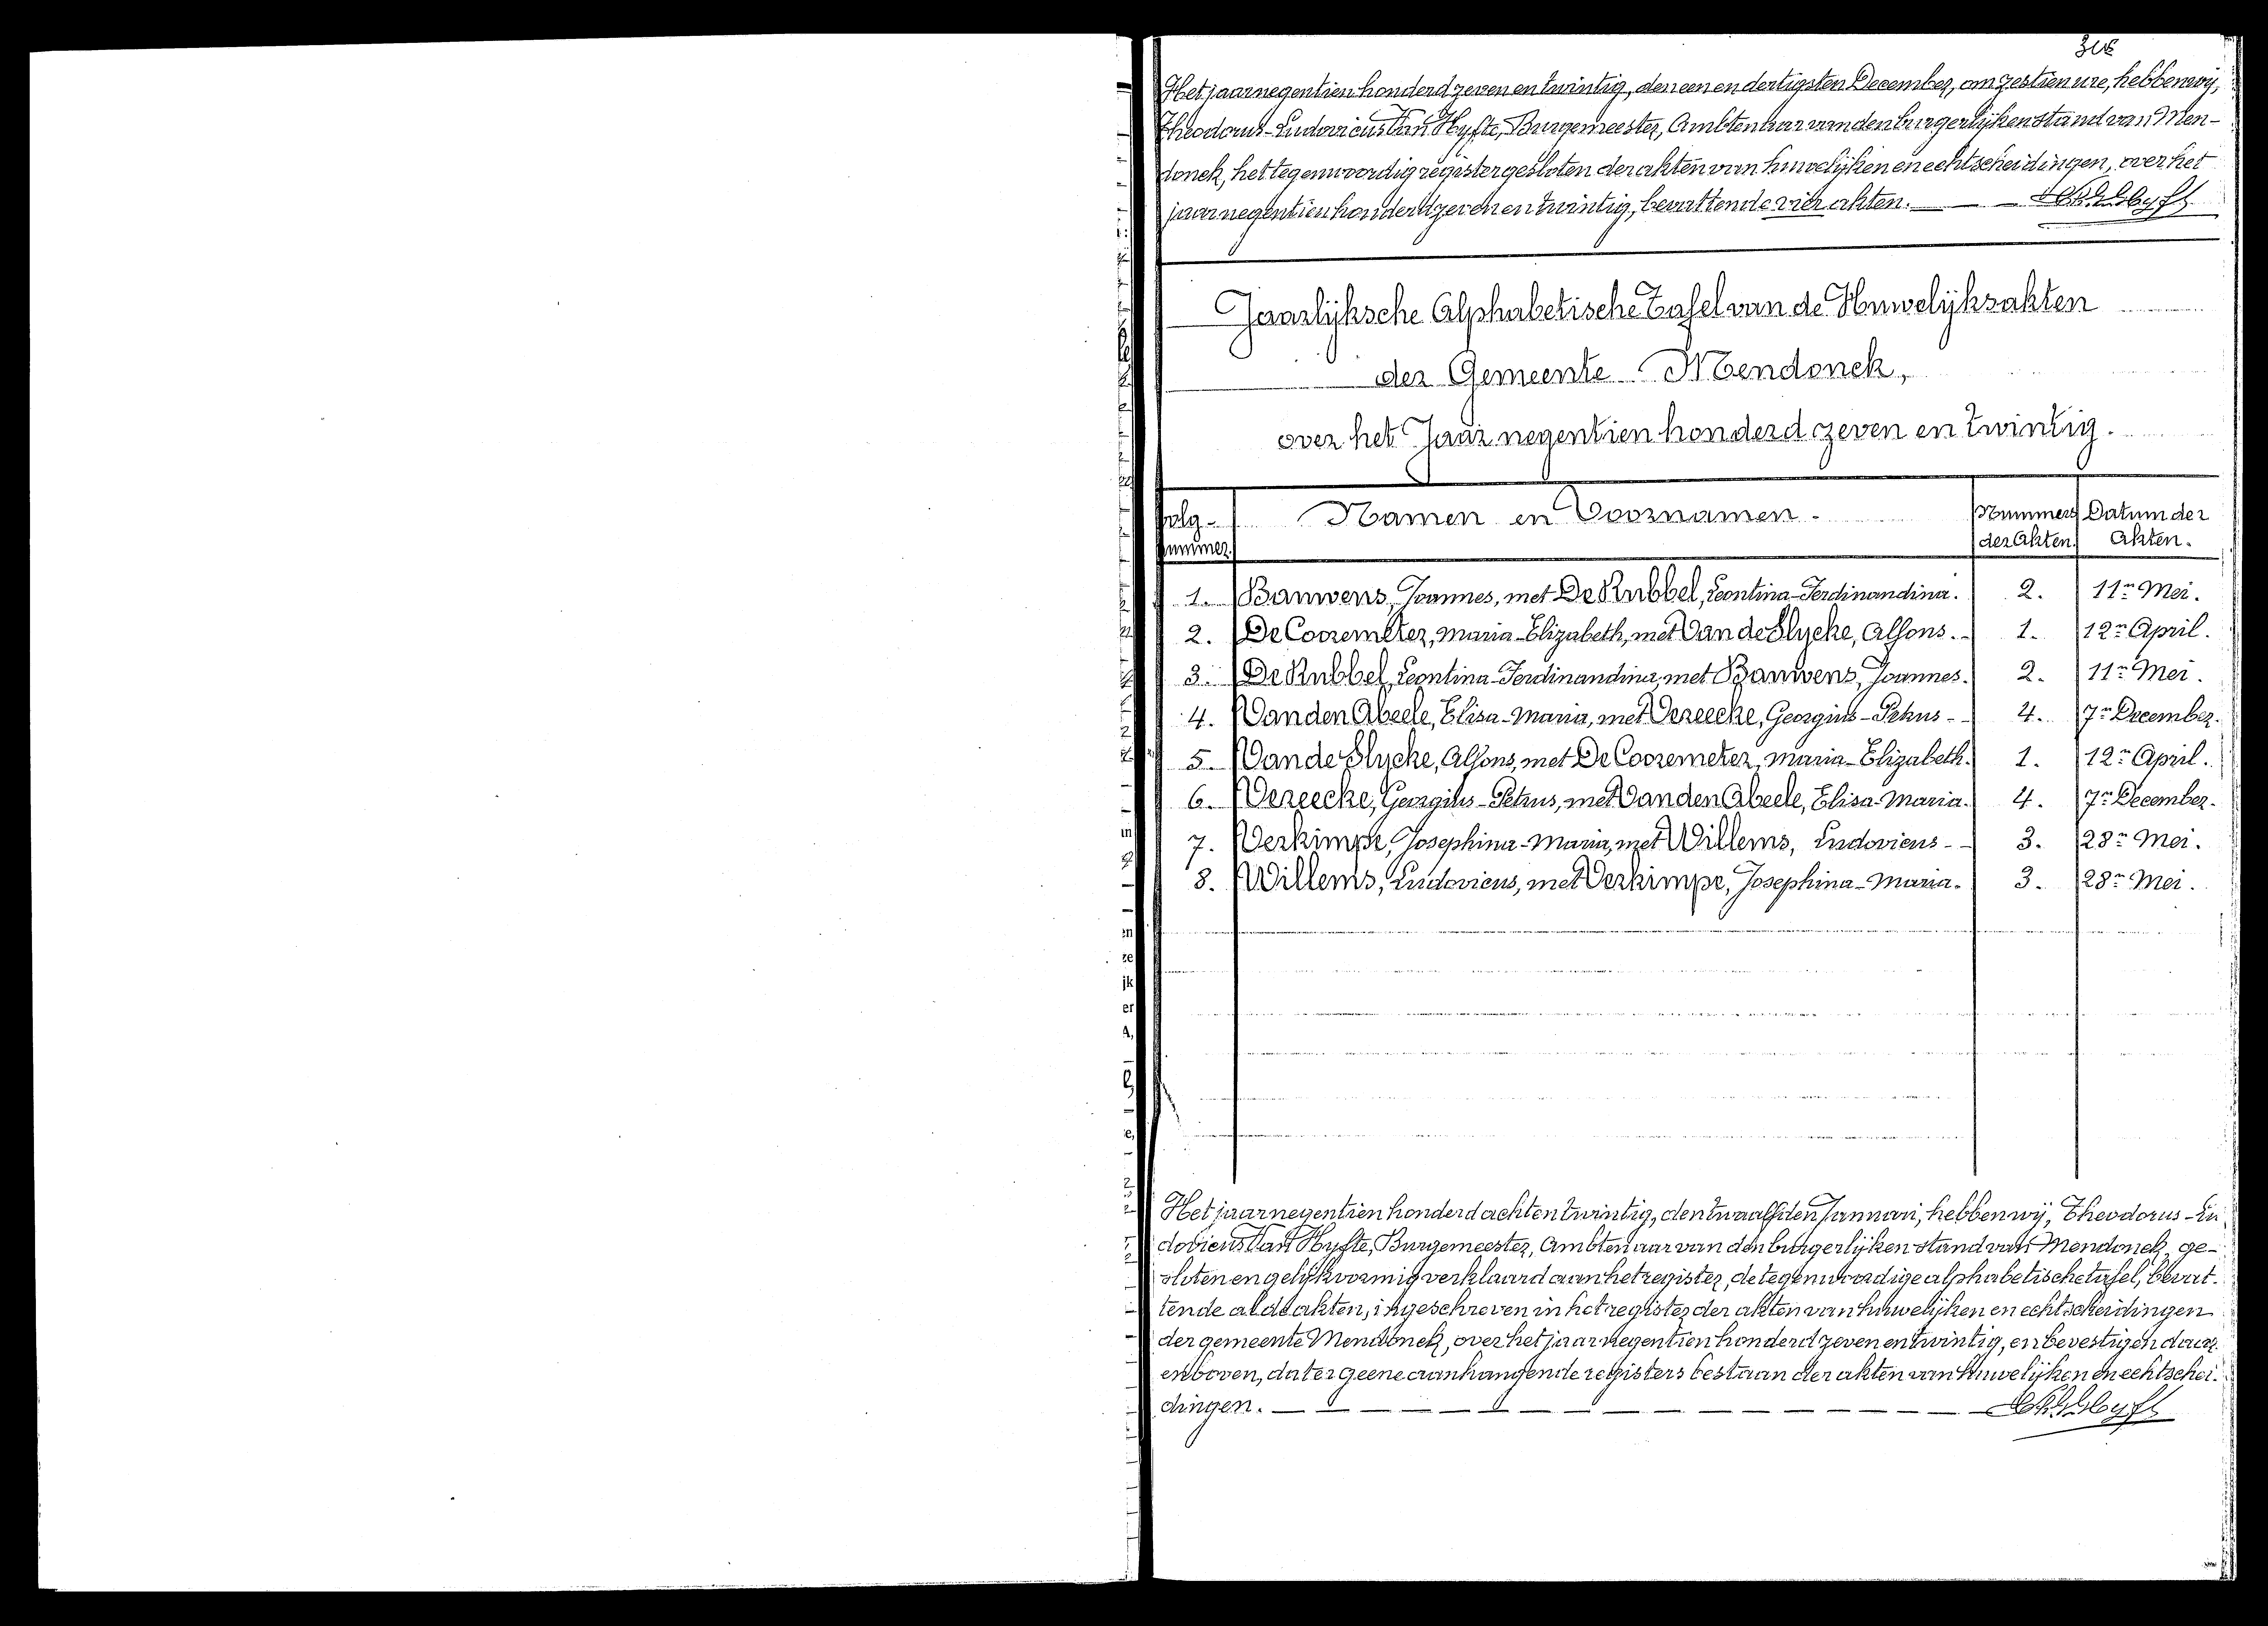 Het jaar negentien honderd zeven en twintig, den een en dertigsten December, om zestien ure, hebben wij,
Theodorus-Ludovicus Van Hyfte, Burgemeester, Ambtenaar van den burgerlijken stand van Men-
donck, het tegenwoordig register gesloten der akten van huwelijken en echtscheidingen, over het
jaar negentien honderd zeven en twintig, bevattende vier akten. — —
Jaarlijksche Alphabetische Tafel van de Huwelijksakten
der Gemeente Mendonck,
over het Jaar negentien honderd zeven en twintig.
Volg- Namen en Voornamen. Nummers Datum der
nummer. der Akten. Akten.
1. Bauwens, Joannes, met De Rubbel, Leontina-Ferdinandina. 2. 11n Mei.
2. De Cooremeter, Maria-Elizabeth, met Van de Slycke, Alfons. - 1. 12n April.
3. De Rubbel, Leontina-Ferdinandina, met Bauwens, Joannes. 2. 11n Mei.
4. Van den Abeele, Elisa-Maria, met Vereecke, Georgius-Petrus - - 4. 7n December.
5. Van de Slycke, Alfons, met De Cooremeter, Maria-Elizabeth. 1. 12n April.
6. Vereecke, Georgius-Petrus, met Van den Abeele, Elisa-Maria. 4. 7n December.
7. Verkimpe, Josephina-Maria, met Willems, Ludovicus - - 3. 28n Mei.
8. Willems, Ludovicus, met Verkimpe, Josephina-Maria. 3. 28n Mei.
Het jaar negentien honderd acht en twintig, den twaalfden Januari, hebben wij, Theodorus-Lu
dovicus Van Hyfte, Burgemeester, Ambtenaar van den burgerlijken stand van Mendonck, ge-
sloten en gelijkvormig verklaard aan het register, de tegenwoordige alphabetische tafel, bevat-
tende al de akten, ingeschreven in het register der akten van huwelijken en echtscheidingen
der gemeente Mendonck, over het jaar negentien honderd zeven en twintig, en bevestigen daar
enboven, dat er geene aanhangende registers bestaan der akten van huwelijken en echtschei-
dingen. — — — — — — — — — — — —